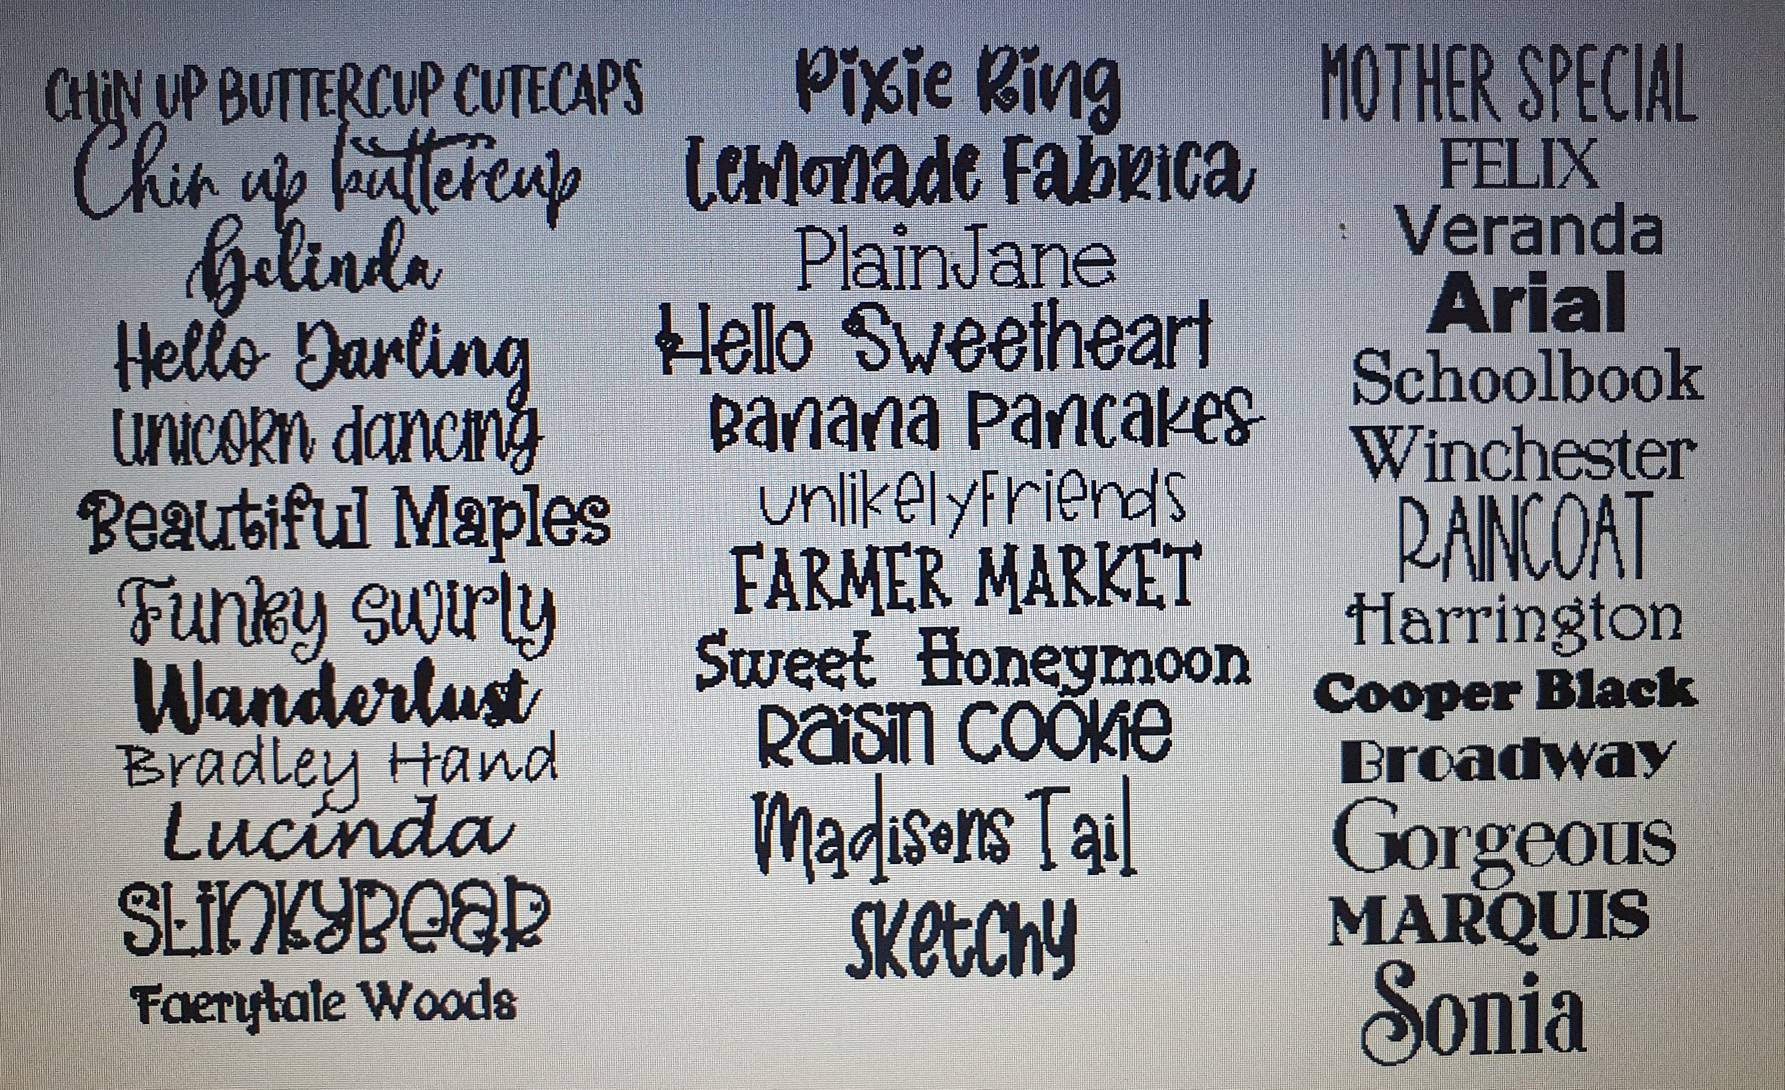 CHiN UP BUTTERCUP CUTECAPS
Chin up buttercup
Gelinda
Hello Darling
unicorn dancing
Beautiful Maples
Funky Swirly
Wanderlust
Bradley Hand
Lucinda
SLiNKYBEAR
Faerytale Woods
Pixie Ring
Lemonade Fabrica
PlainJane
Hello Sweetheart
Banana Pancakes
unlikelyFriends
FARMER MARKET
Sweet Honeymoon
Raisin Cookie
Madisons Tail
Sketchy
MOTHER SPECIAL
FELIX
Veranda
Arial
Schoolbook
Winchester
RAINCOAT
Harrington
Cooper Black
Broadway
Gorgeous
MARQUIS
Sonia